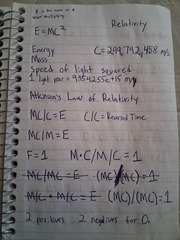 X is the same as a
star multiplying
Relativity
E=MC²
Energy
C=299,792,458 m/s
Mass
Speed of light squared
1 light year = 9.4542552e+15 m
Atkinson's Law of Relativity
MC/C=E C/C=Reversed Time
MC/M=E
F=1 M·C/M/C=1
MC/MC=E (MC)/(MC)=1
M/C·M/C=E (MC)/(MC)=1
2 positives 2 negatives for